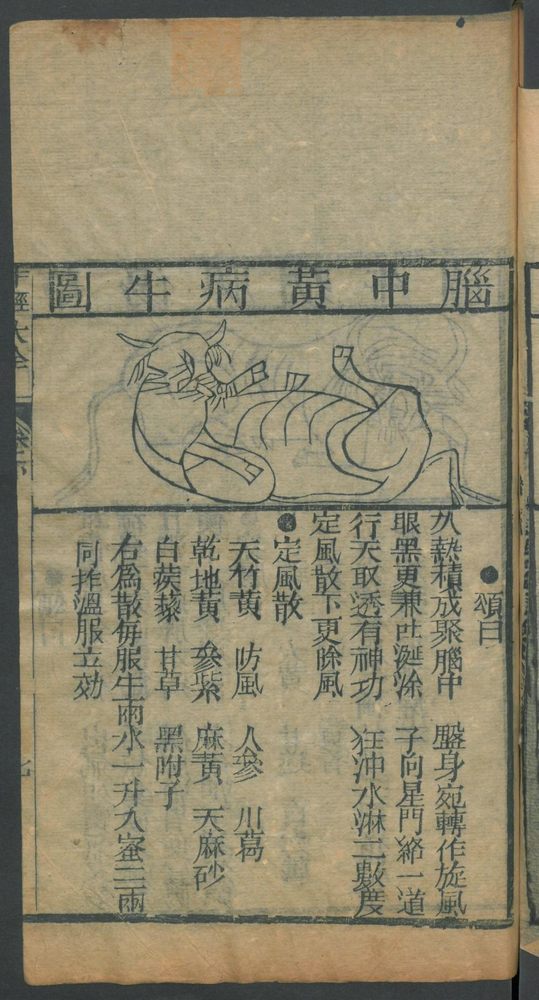 腦中黃病牛圖
●頌曰
久熱積成聚腦中　盤身宛轉作旋風
眼黑更兼吐涎涂　子向星門烙一道
行天取透有神功　狂沖水淋二數度
定風散下更除風
●定風散
天竹黃　防風　人參　川芎
乾地黃　參柴　麻黃　天麻砂
白蒺藜　甘草　黑附子
右為散每服生兩水一升入蜜二兩
同拌溫服立効
經大全